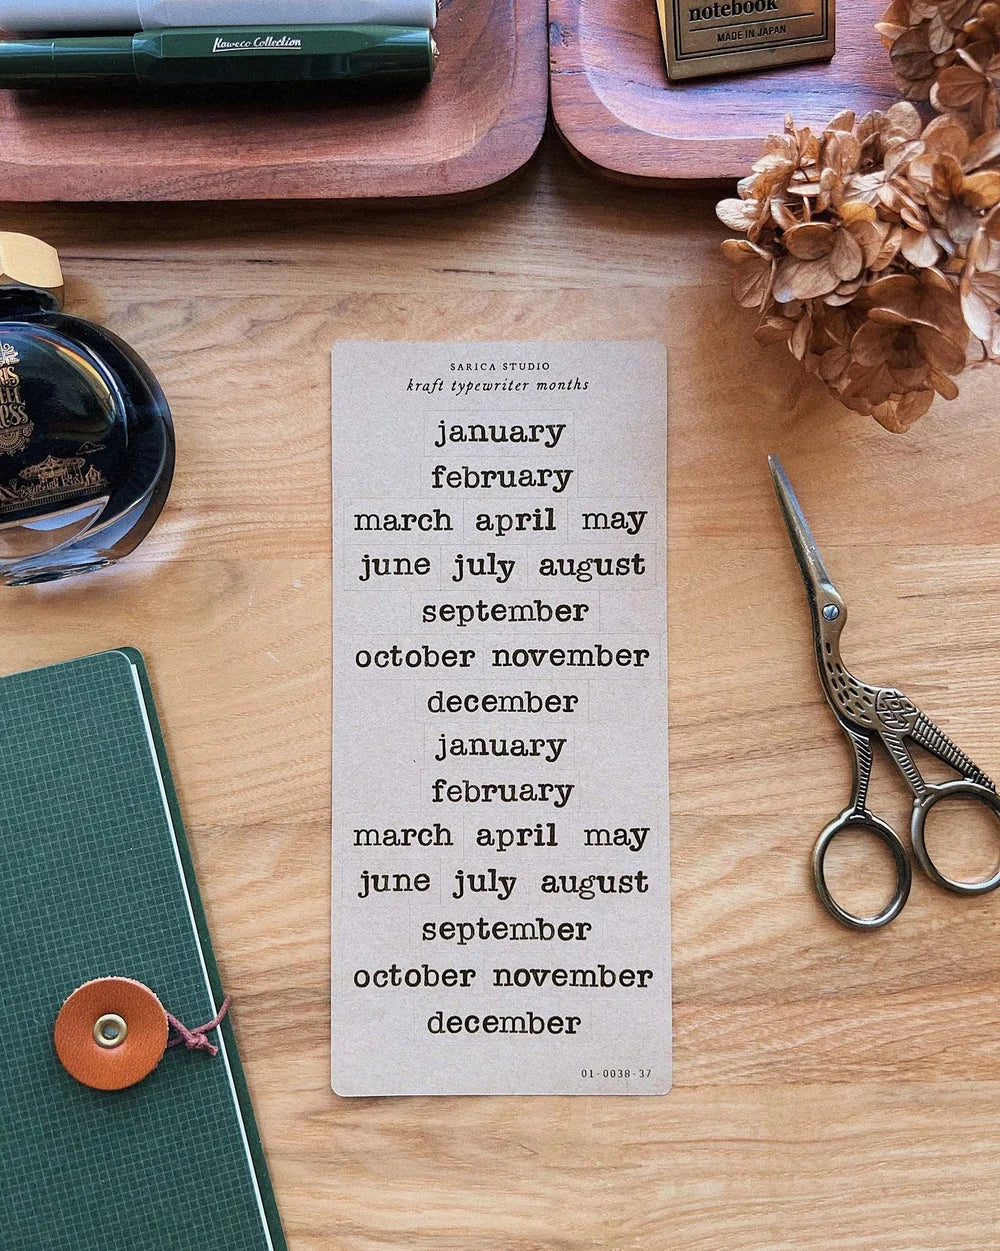 Kaweco Collection
notebook
MADE IN JAPAN
SARICA STUDIO
kraft typewriter months
january
february
march april may
june july august
september
october november
december
january
february
march april may
june july august
september
october november
december
01-0038-37